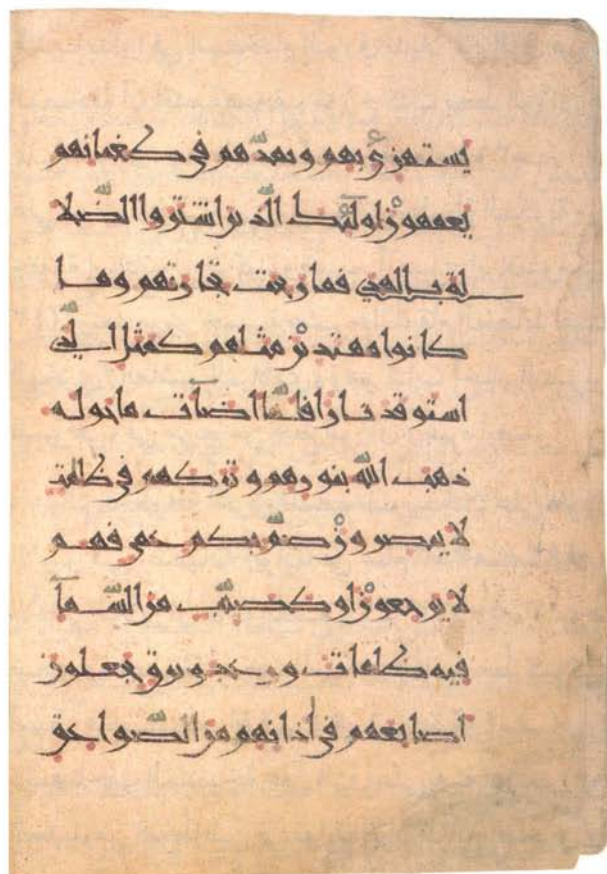 يستهزئ بهم ويمدهم في طغيانهم
يعمهون أولئك الذين اشتروا الضلا
لة بالهدى فما ربحت تجارتهم وما
كانوا مهتدين مثلهم كمثل الذي
استوقد نارا فلما اضآت ما حوله
ذهب الله بنورهم وتركهم في ظلمت
لا يبصرون صم بكم عمي فهم
لا يرجعون او كصيب من السمآ
فيه ظلمات ورعد وبرق يجعلون
اصابعهم في آذانهم من الصواعق